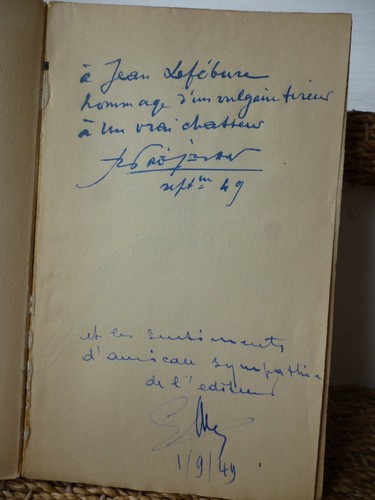 à Jean Lefébure
hommage d'un vulgaire tireur
à un vrai chasseur
sept^m 49
et les sentiments
d'amicale sympathie
de l'éditeur
1/9/49